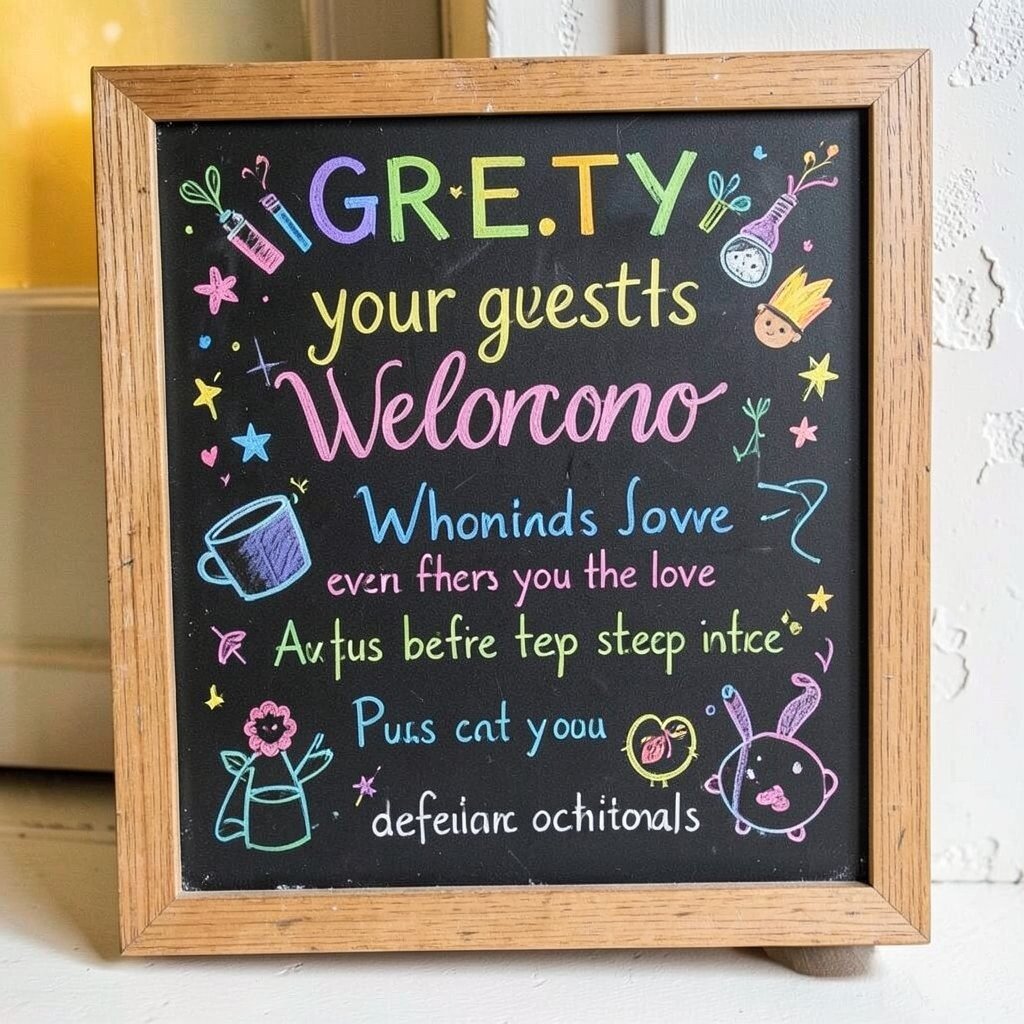 GRE.TY
your guestts
Welorcono
Whoninds Jovve
even fhers you the love
Autus befire tep steep intce
Puus cnt you
defeilarc ochitonals